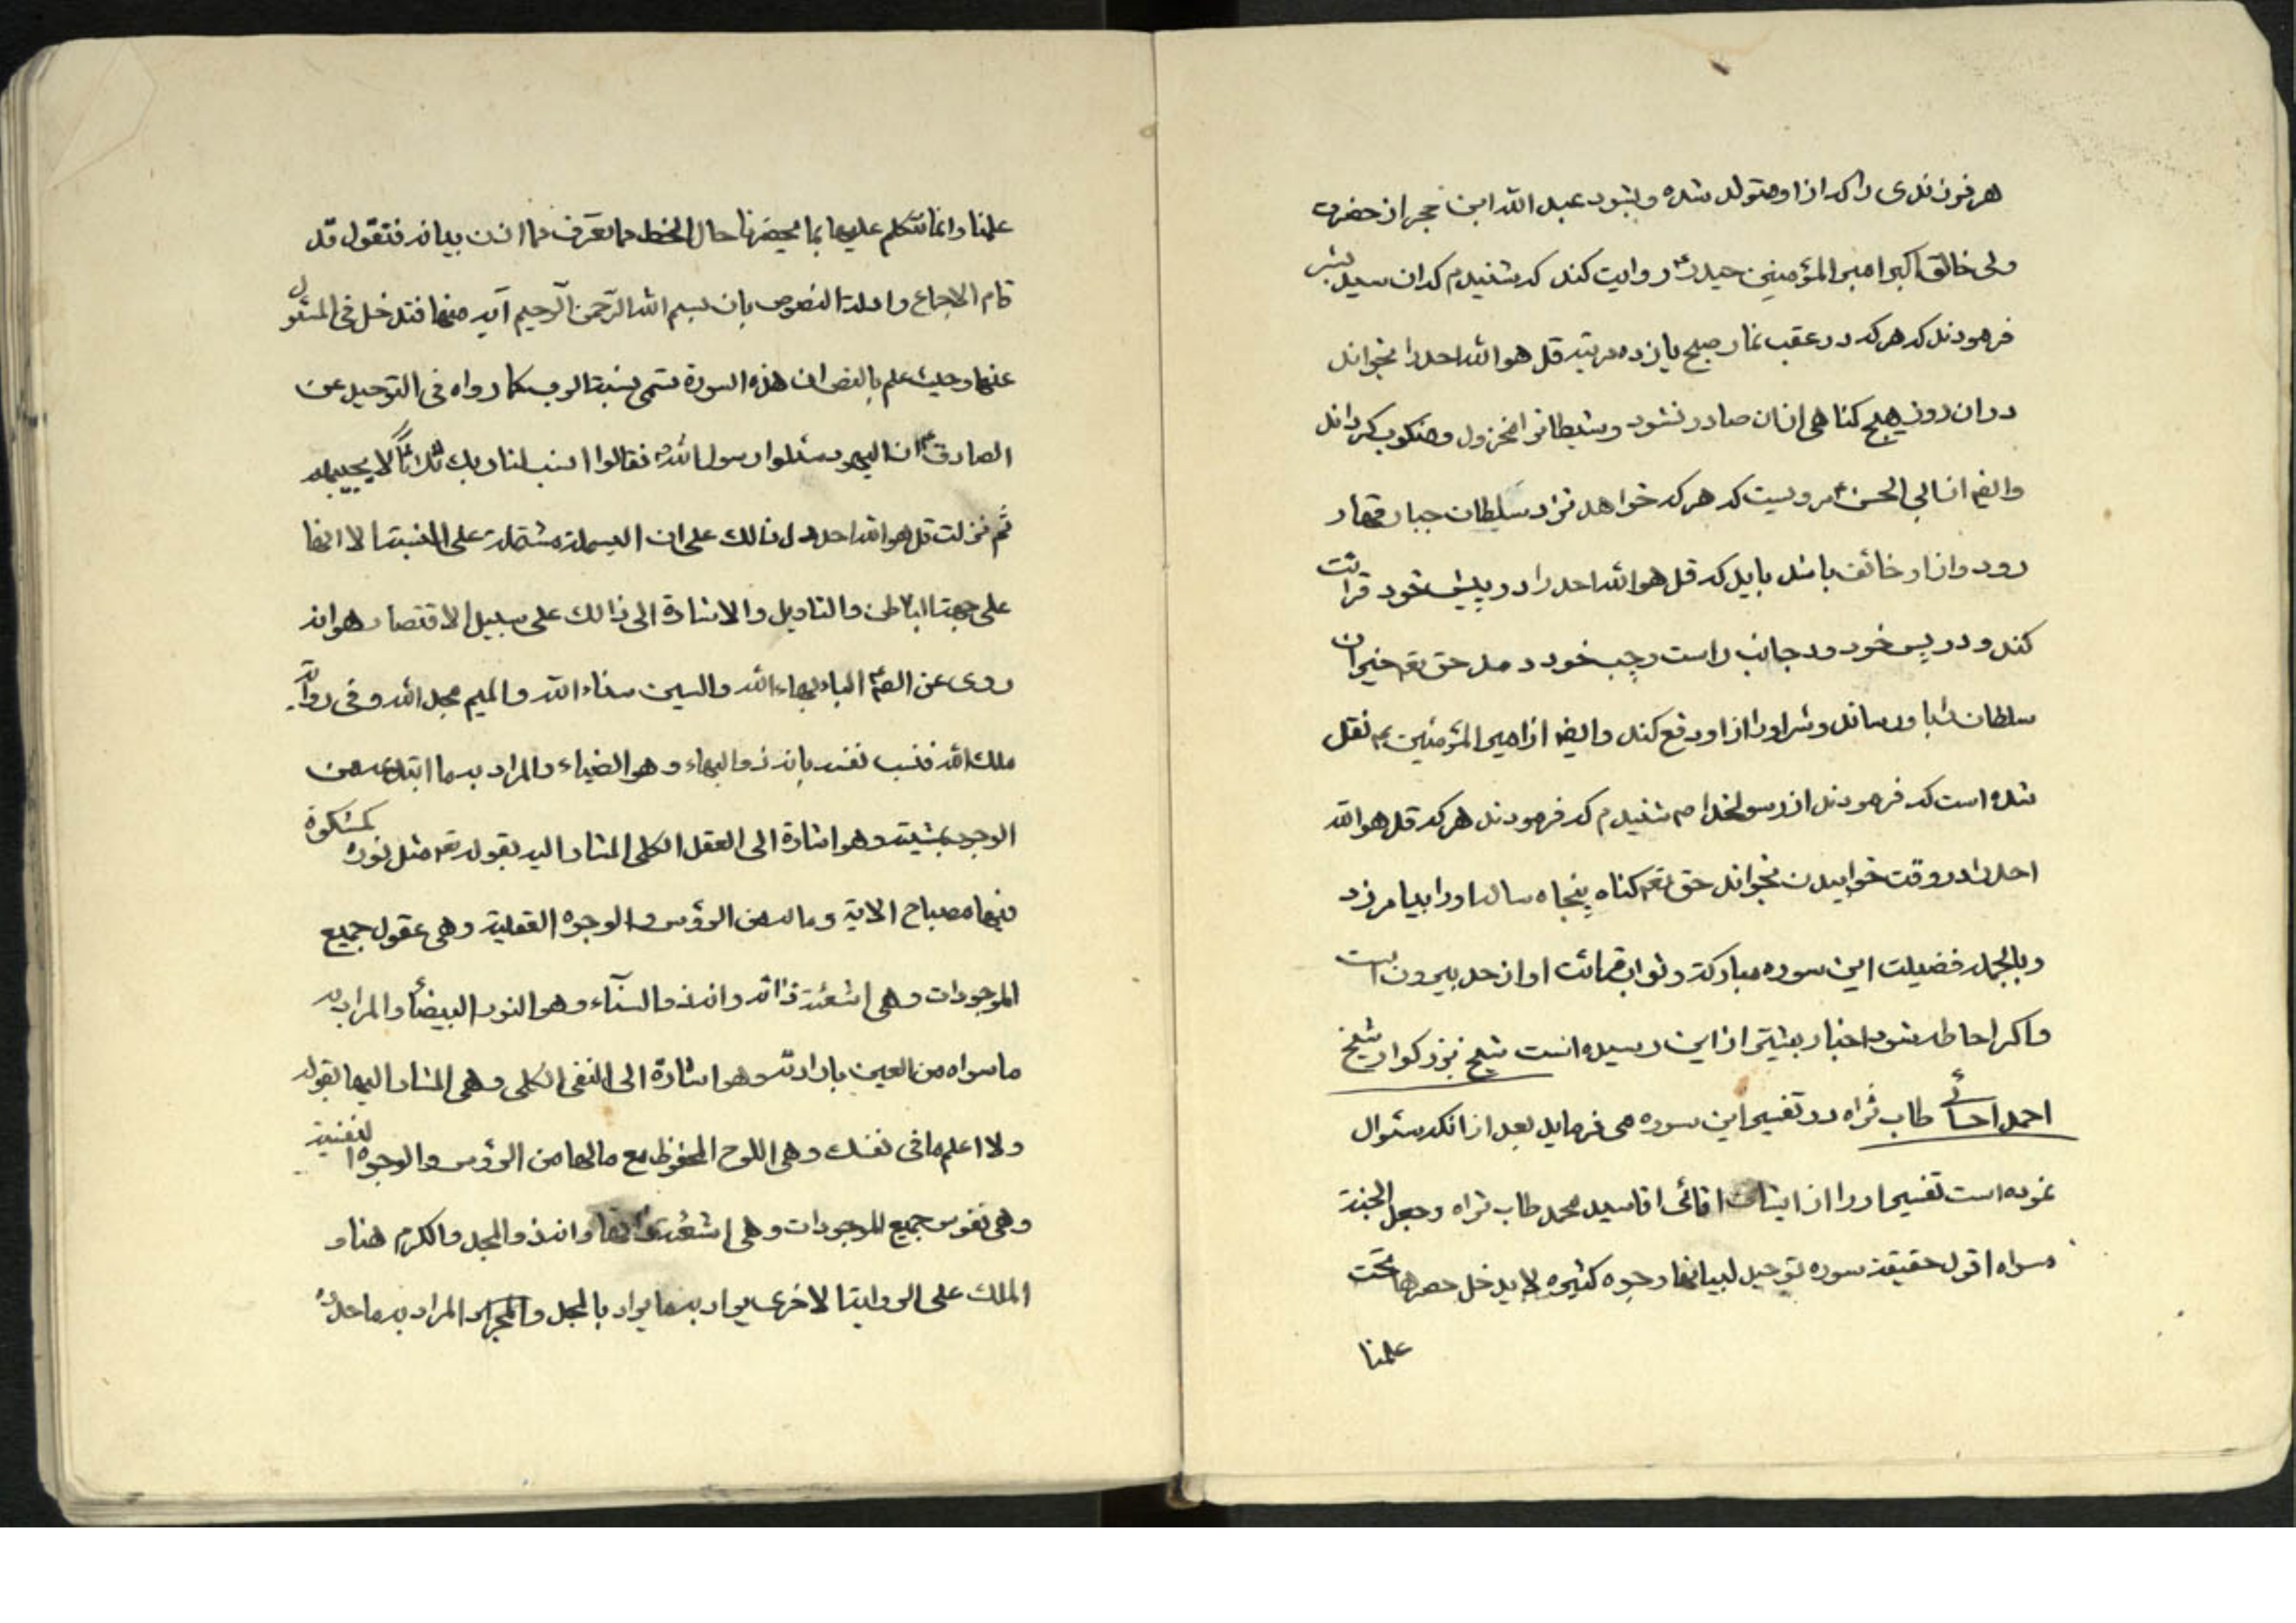 هر فرزندی را که از او متولد شده و بشود عبد الله ابن حجر از حضرت
ولی خالق اکبر امیر المؤمنین حیدر ع روایت کند که شنیدم که ان سید بشر
فرمودند که هر که در عقب نماز صبح یازده مرتبه قل هو الله احد را بخواند
در ان روز هیچ کناهی از ان صادر نشود و شیطانرا مخزول و منکوب کرداند
وایضم از ابی الحسن ع مرویست که هر که خواهد نزد سلطان جبار قهار
رود و از او خائف باشد باید که قل هو الله احد را در پیش خود قرائت
کند و در پس خود و در جانب راست و چپ خود در مد حق تعم خیر ان
سلطان را باو رساند و شر او را از او دفع کند وایضم از امیر المؤمنین ع نقل
شده است که فرمودند از رسولخدا ص شنیدم که فرمودند هر که قل هو الله
احد را در وقت خوابیدن بخواند حق تعم کناه پنجاه ساله او را بیامرزد
و بالجمله فضیلت این سوره مبارکة و ثواب قرائت او از حد بیرون است
و اکر احاطه شود اخبار بیشتر از این رسیده است شیخ بزرکوار شیخ
احمد احسائی طاب ثراه در تفسیر این سوره می فرماید بعد از انکه سئوال
نموده است تفسیر او را از ایشان اقائی اقا سید محمد طاب ثراه و جعل الجنة
مسراه اقول حقیقة سوره توحید لبیانها وجوه کثیره لا یدخل حصرها تحت
علمنا
علمنا وانما نتکلم علیها بما یحضرنا حال الخط مما نعرف مما اذن بیانه فنقول قد
قام الاجماع وادلة النصوص بان بسم الله الرحمن الرحیم آیه منها فتدخل فی المسئول
عنها وحیث علم بالنص ان هذه السورة تسمی بنسبة الرب کما رواه فی التوحید عن
الصادق ع ان الیهود سئلوا رسول الله ص فقالوا انسب لنا ربک فلبث ثلاثا لا یجیبهم
ثم نزلت قل هو الله احد دل ذالک علی ان البسملة مشتملة علی النسبة الا انها
علی جهة الباطن والتاویل والاشارة الی ذالک علی سبیل الاقتصار هو انه
روی عن الصم ع الباء بهاء الله والسین سناء الله والمیم مجد الله وفی روایة
ملک الله فنسب نفسه بانه ذو البهاء وهو الضیاء والمراد به ما ابتدعه من
الوجود بمشیته وهو اشارة الی العقل الکلی المشار الیه بقوله تعم مثل نوره کمشکوة
فیها مصباح الایة وماله من الرؤس والوجوه العقلیة وهی عقول جمیع
الموجودات وهی اشعة ذاته وانه ذو السنآء وهو النور البیضاء والمراد به
ما سواه من العین بارادته وهو اشارة الی النفس الکلی وهی المشار الیها بقوله
ولا اعلم ما فی نفسک وهی اللوح المحفوظ مع مالها من الرؤس والوجوه النفسیة
وهی نفوس جمیع الموجودات وهی اشعة ذاتها وانه ذو المجد والکرم هنا و
الملک علی الروایة الاخری یراد به ما یراد بالمجد والمراد به ما حدده